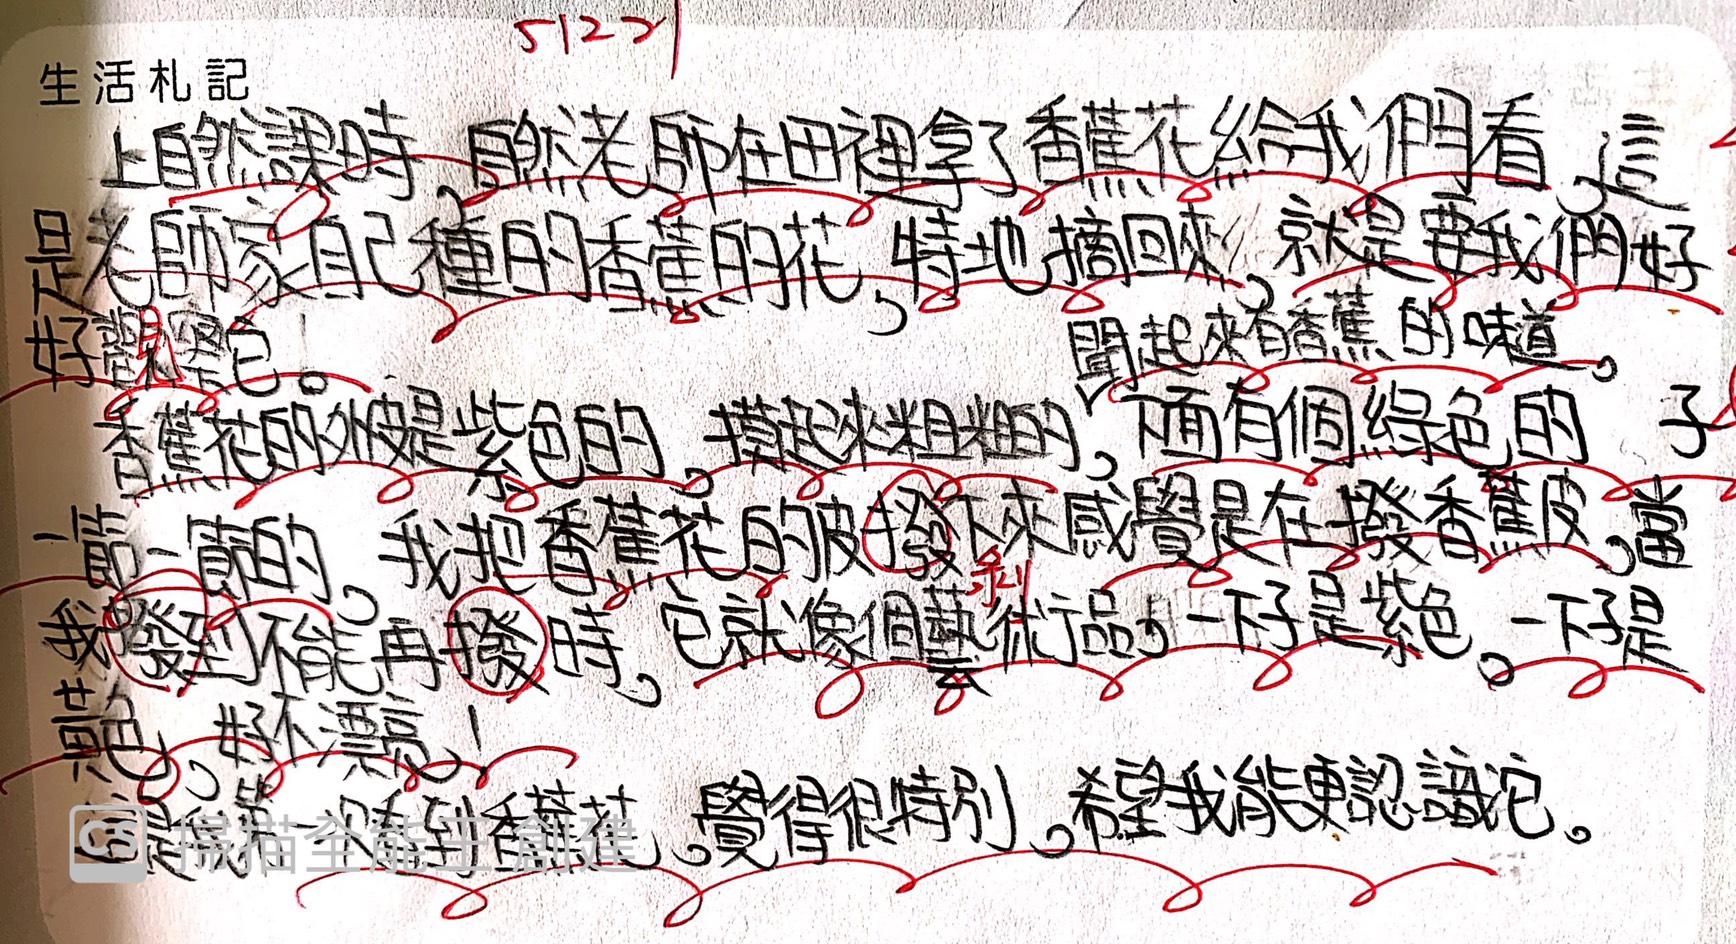 5122
生活札記
上自然課時,自然老師在田裡拿了香蕉花給我們看,這
是老師家自己種的香蕉的花,特地摘回來,就是要我們好
好觀察它。
聞起來有香蕉的味道。
香蕉花的外皮是紫色的,摸起來粗粗的,下面有個綠色的 子
一節一節的,我把香蕉花的皮撥下來感覺是在撥香蕉皮,當
剝
我撥到不能再撥時,它就像個藝術品,一下子是紫色,一下子是
黃色,好不漂亮!
這是我第一次看到香蕉花,覺得很特別,希望我能更認識它。
CS 掃描全能王 創建